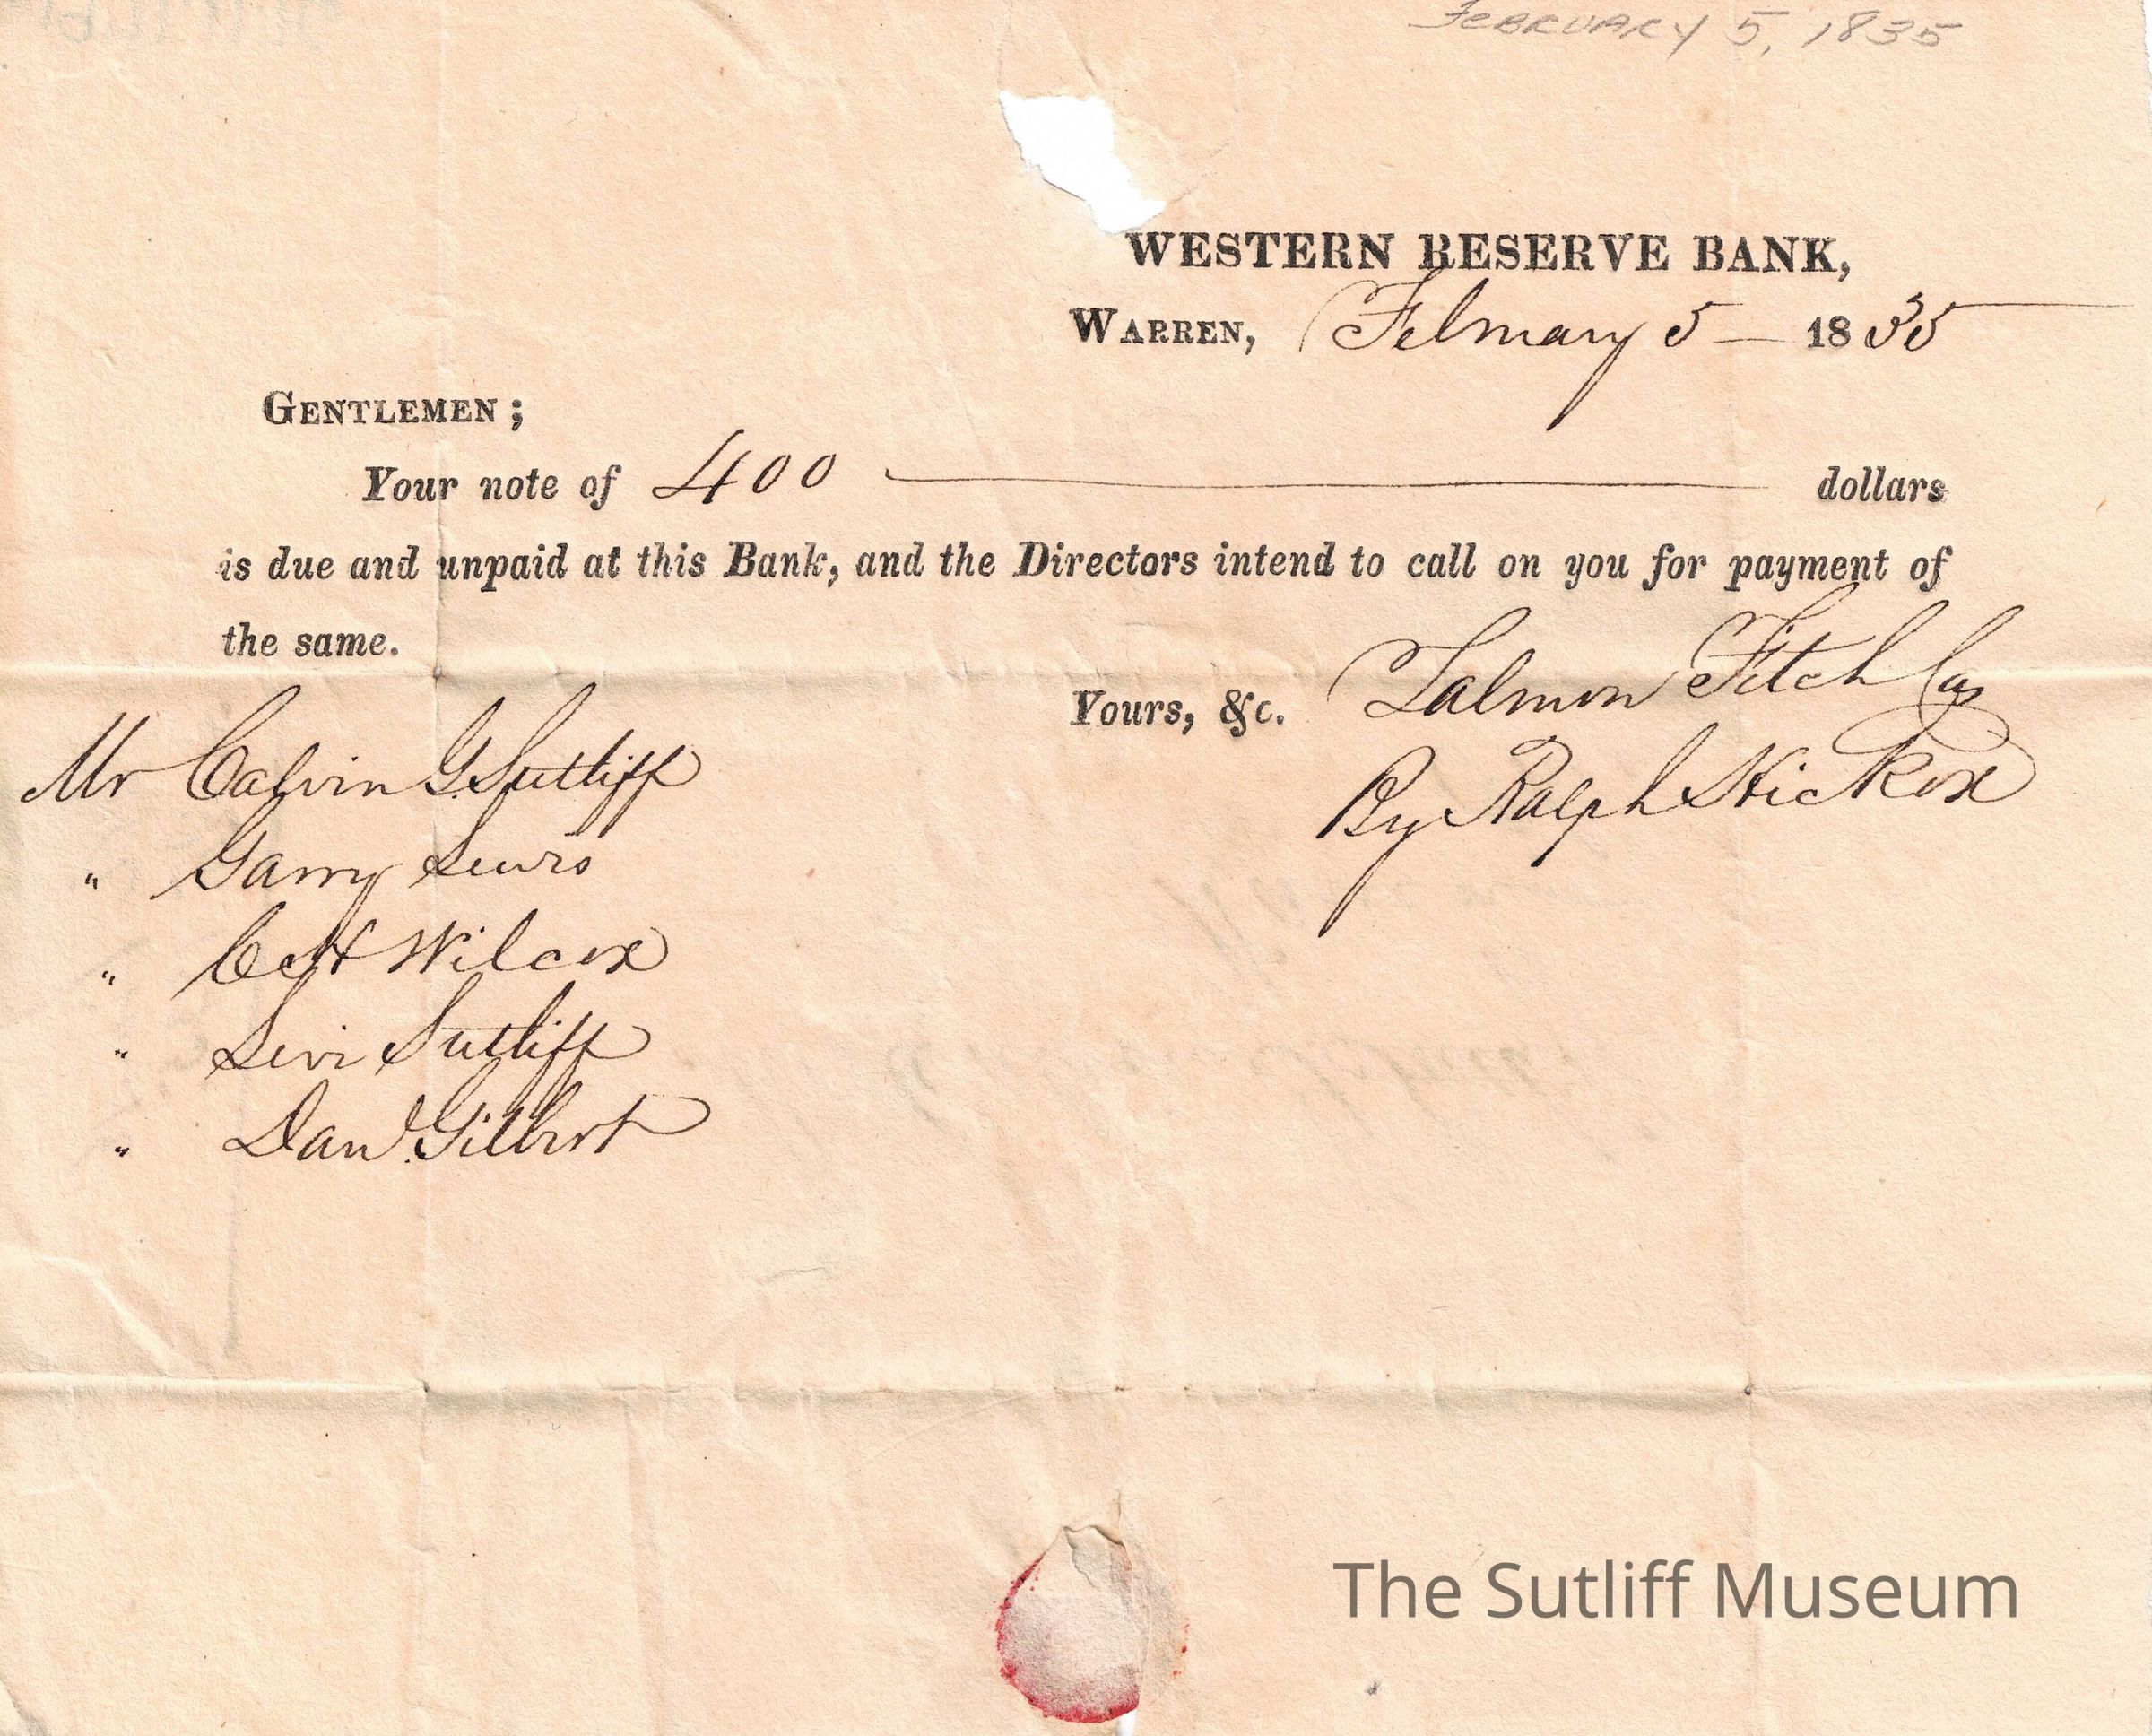 FEBRUARY 5, 1835
WESTERN RESERVE BANK,
WARREN, February 5 — 1835
GENTLEMEN ;
Your note of 400 ——— dollars
is due and unpaid at this Bank, and the Directors intend to call on you for payment of
the same.
Yours, &c. Zalmon Fitch Cas
By Ralph Hickox
Mr Calvin G. Sutliff
" Garry Lewis
" Wilcox
" Levi Sutliff
" Danl. Gilbert
The Sutliff Museum